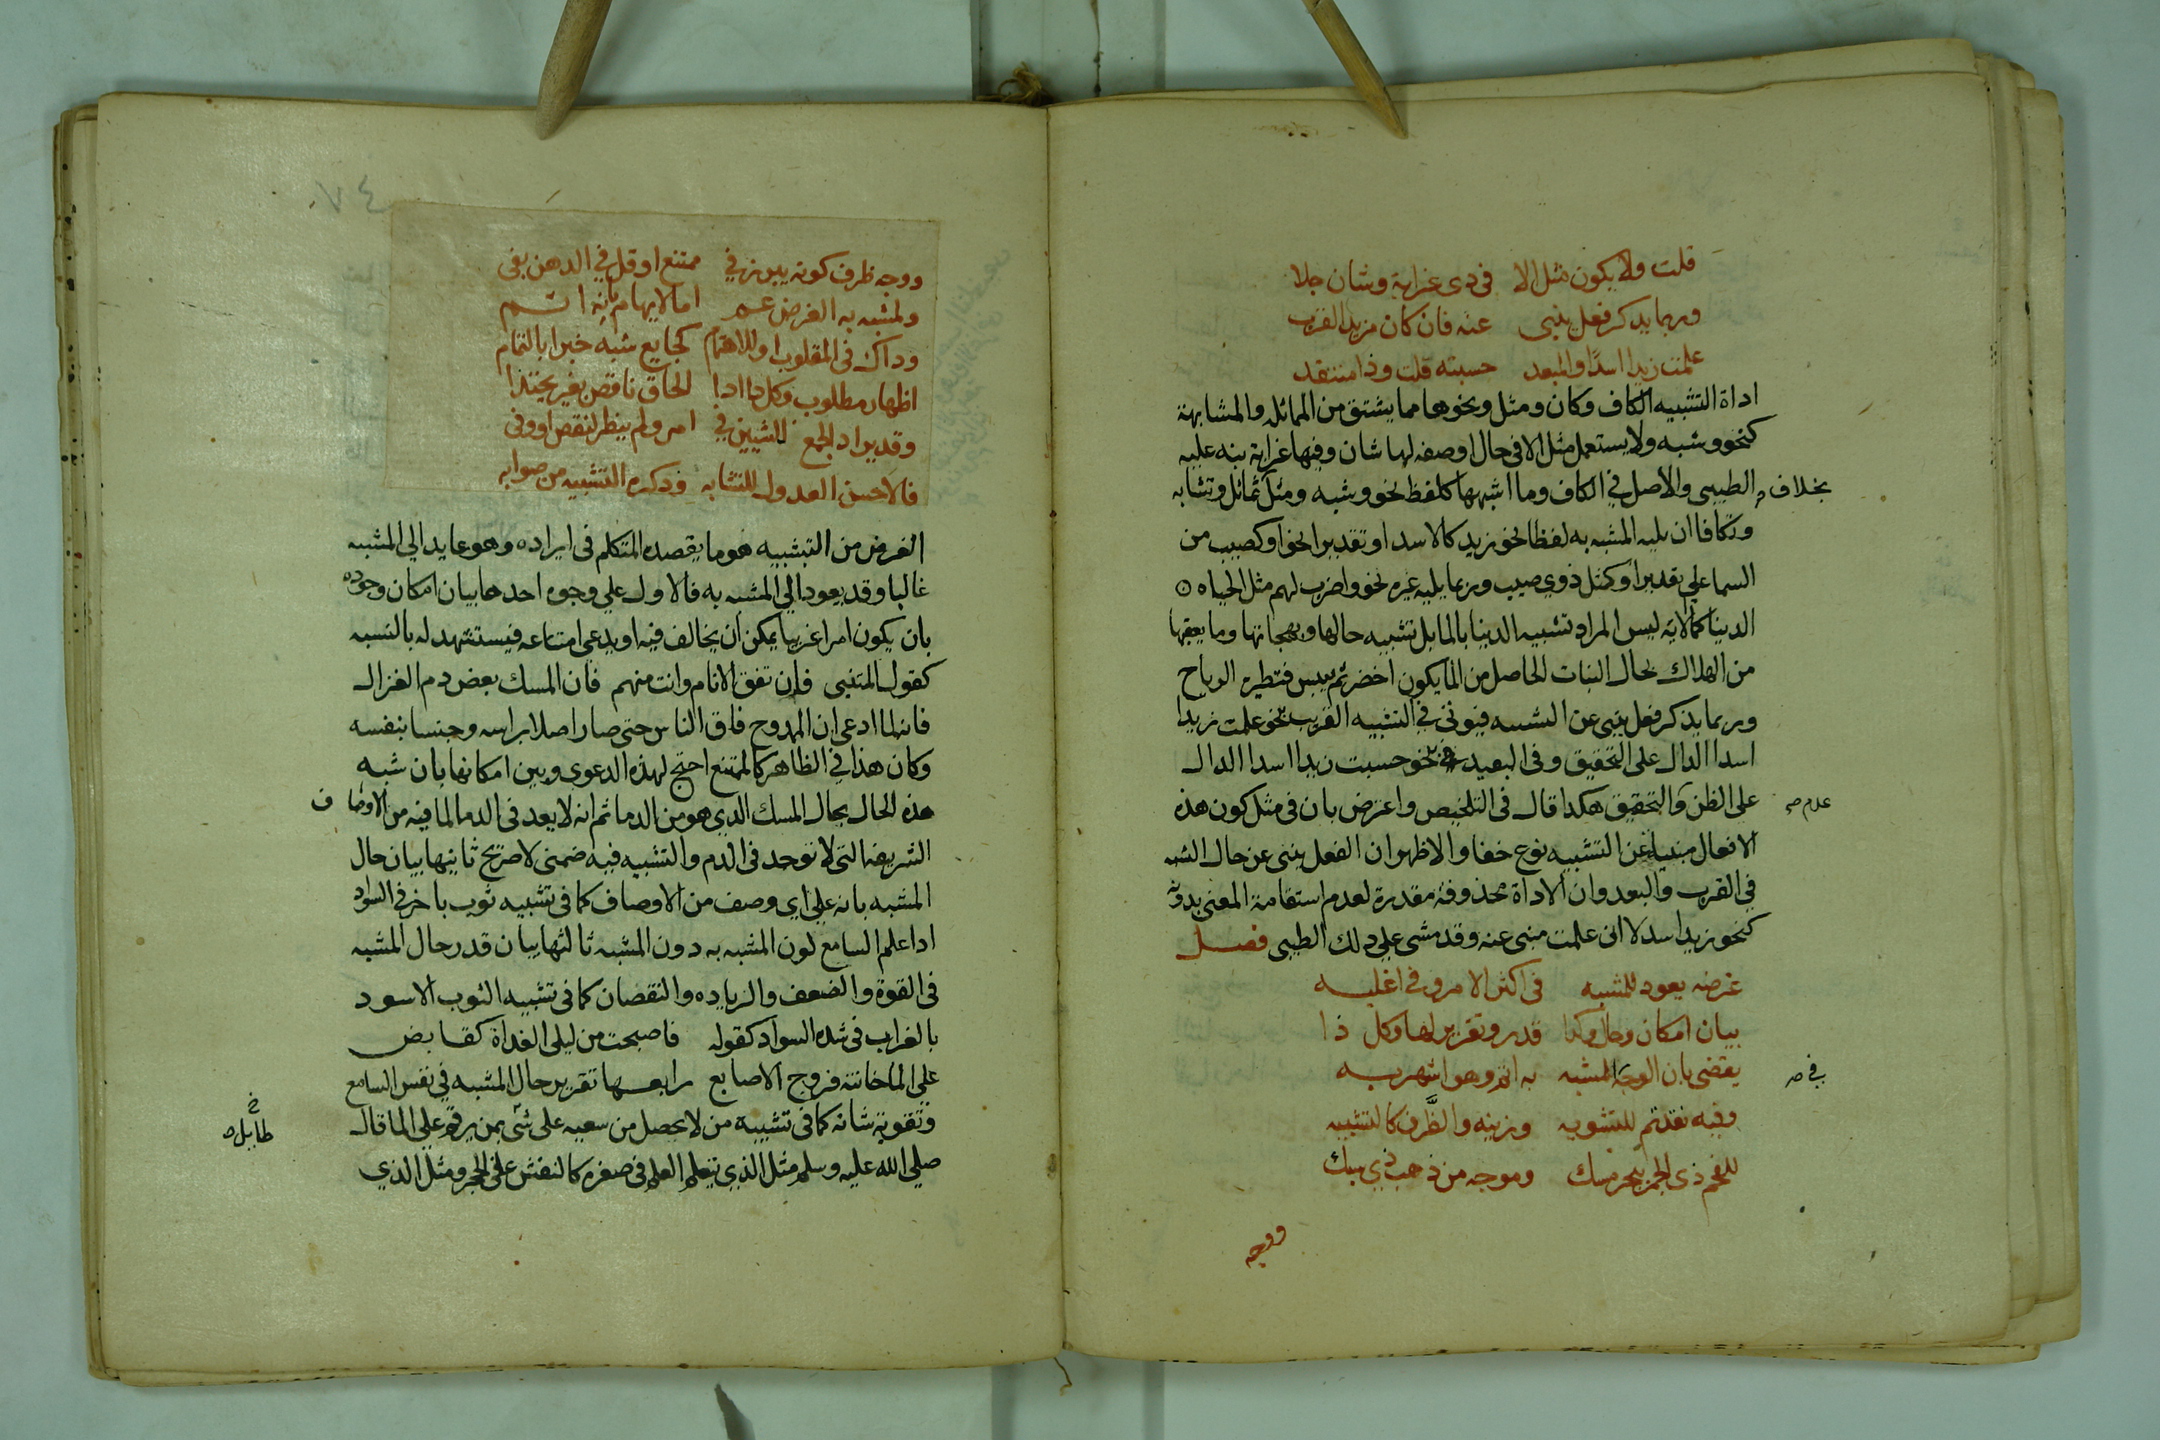 قلت ولا يكون مثل الا في ذي غرابة وشان جلا
وربما يذكر فعل ينبي عنه فان كان مزيد القرب
علمت زيدا اسدا والمبعد حسبته قلت وذا منتقد
اداة التشبيه الكاف وكان ومثل ونحوها مما يشتق من المماثله والمشابهة
كنحو وشبه ولا يستعمل مثل الا في حال او صفه لها شان وفيها غرابة نبه عليه
الطيبي والاصل في الكاف وما اشبهها كلفظ نحو وشبه ومثل تماثل وتشابه
بخلاف
وتكافا ان يليه المشبه به لفظا نحو زيد كالاسد او تقديرا نحو او كصيب من
السما علي تقدير او كمثل ذوي صيب وربما يليه غيره نحو واضرب لهم مثل الحياه
الدنيا كما الايه ليس المراد تشبيه الدنيا بالما بل تشبيه حالها وبهجاتها وما يعقبها
من الهلاك بحال النبات الحاصل من الما يكون اخضر ثم ييبس فتطيره الرياح
وربما يذكر فعل ينبي عن التشبيه فيوتى في التشبيه القريب بنحو علمت زيدا
اسدا الدال على التحقيق وفي البعيد بنحو حسبت زيدا اسدا الدال
على الظن والتحقيق هكدا قال في التلخيص واعترض بان في مثل كون هذه
عدم صح
الافعال منبيا عن التشبيه نوع خفا والاظهر ان الفعل ينبى عن حال التشبيه
في القرب والبعد وان الاداة محذوفة مقدرة لعدم استقامة المعنى بدونه
كنحو زيد اسد لا ان علمت منبى عنه وقد مشى على ذلك الطيبي فصل
غرضه يعود للمشبه في اكثر الامر وفي اغلبه
بيان امكان وحال وكذا قدر وتقرير لها وكل ذا
يقضى بان الوجه للمشبه به اتم وهو اشهر به
في صح
وفيه نقد ثم للتشويه وزينه والظرف كالتشبيه
للفحم ذي الجمر ببحر مسك وموجه من ذهب ذي سبك
ووجه
٧٤
ووجه ظرف كونه يبرز في ممتنع او قل في الدهن يفى
ولمشبه به الغرض عم اما لايهام بانه اتم
وداك في المقلوب او للاهتمام كجايع شبه خبزا بالتمام
اظهار مطلوب وكل دا ادا الحاق ناقص بغير يحتذا
وقد يراد الجمع للشيين في امر ولم ينظر لنقص او وفى
فالاحسن العدول للتشابه وذكره التشبيه من صوابه
الغرض من التشبيه هو ما يقصده المتكلم في ايراده وهو عايد الي المشبه
غالبا وقد يعود الي المشبه به فالاول علي وجوه احدها بيان امكان وجوده
بان يكون امرا غريبا يمكن ان يخالف فيه او يدعي امتناعه فيستشهد له بالتشبيه
كقول المتنبي فان تفق الانام وانت منهم فان المسك بعض دم الغزال
فانه لما ادعى ان الممدوح فاق الناس حتى صار اصلا براسه وجنسا بنفسه
وكان هذا في الظاهر كالممتنع احتج لهذه الدعوى وبين امكانها بان شبه
هذه الحال بحال المسك الذي هو من الدما ثم انه لا يعد في الدما لما فيه من الاوصاف
الشريفه التي لا توجد في الدم والتشبيه فيه ضمنى لا صريح ثانيها بيان حال
المشبه بانه على اي وصف من الاوصاف كما في تشبيه ثوب باخر في السواد
ادا علم السامع لون المشبه به دون المشبه ثالثها بيان قدر حال المشبه
في القوة والضعف والزياده والنقصان كما في تشبيه الثوب الاسود
بالغراب في شده السواد كقوله فاصبحت من ليلى الغداة كقابض
على الما خانته فروج الاصابع رابعها تقرير حال المشبه في نفس السامع
وتقوية شانه كما في تشبيه من لا يحصل من سعيه على شى بمن يرقم على الما قال
طايل
صلي الله عليه وسلم مثل الذي يتعلم العلم في صغره كالنقش على الحجر ومثل الذي